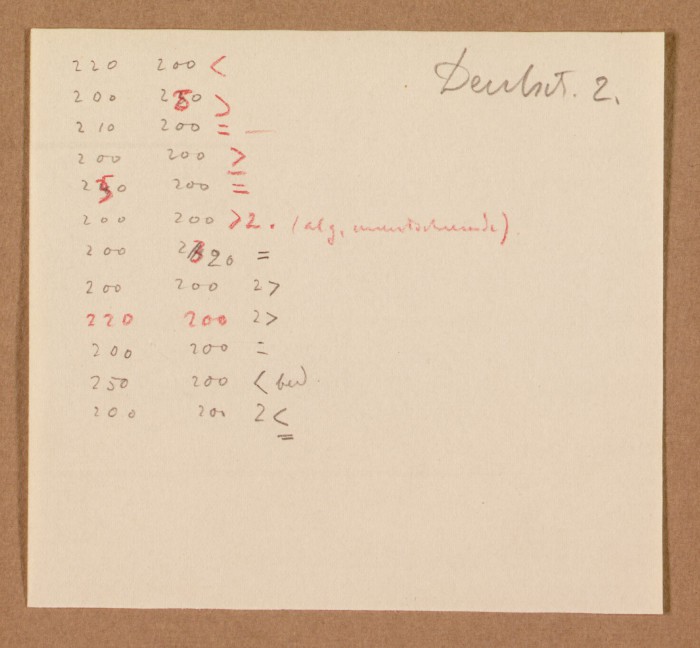 Deubst. 2.
220 200 <
200 250 >
210 200 =
200 200 >
250 200 =
200 200 >2.
200 220 =
200 200 2>
220 200 2>
200 200 =
250 200 < bed.
200 200 2<